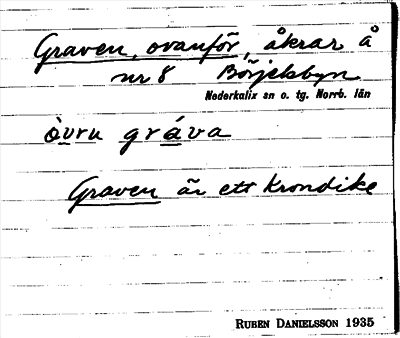 Graven, ovanför, åkrar å
nr 8 Börjelsbyn
Nederkalix sn o. tg. Norrb. län
òvru gráva
Graven är ett Krondike
RUBEN DANIELSSON 1935